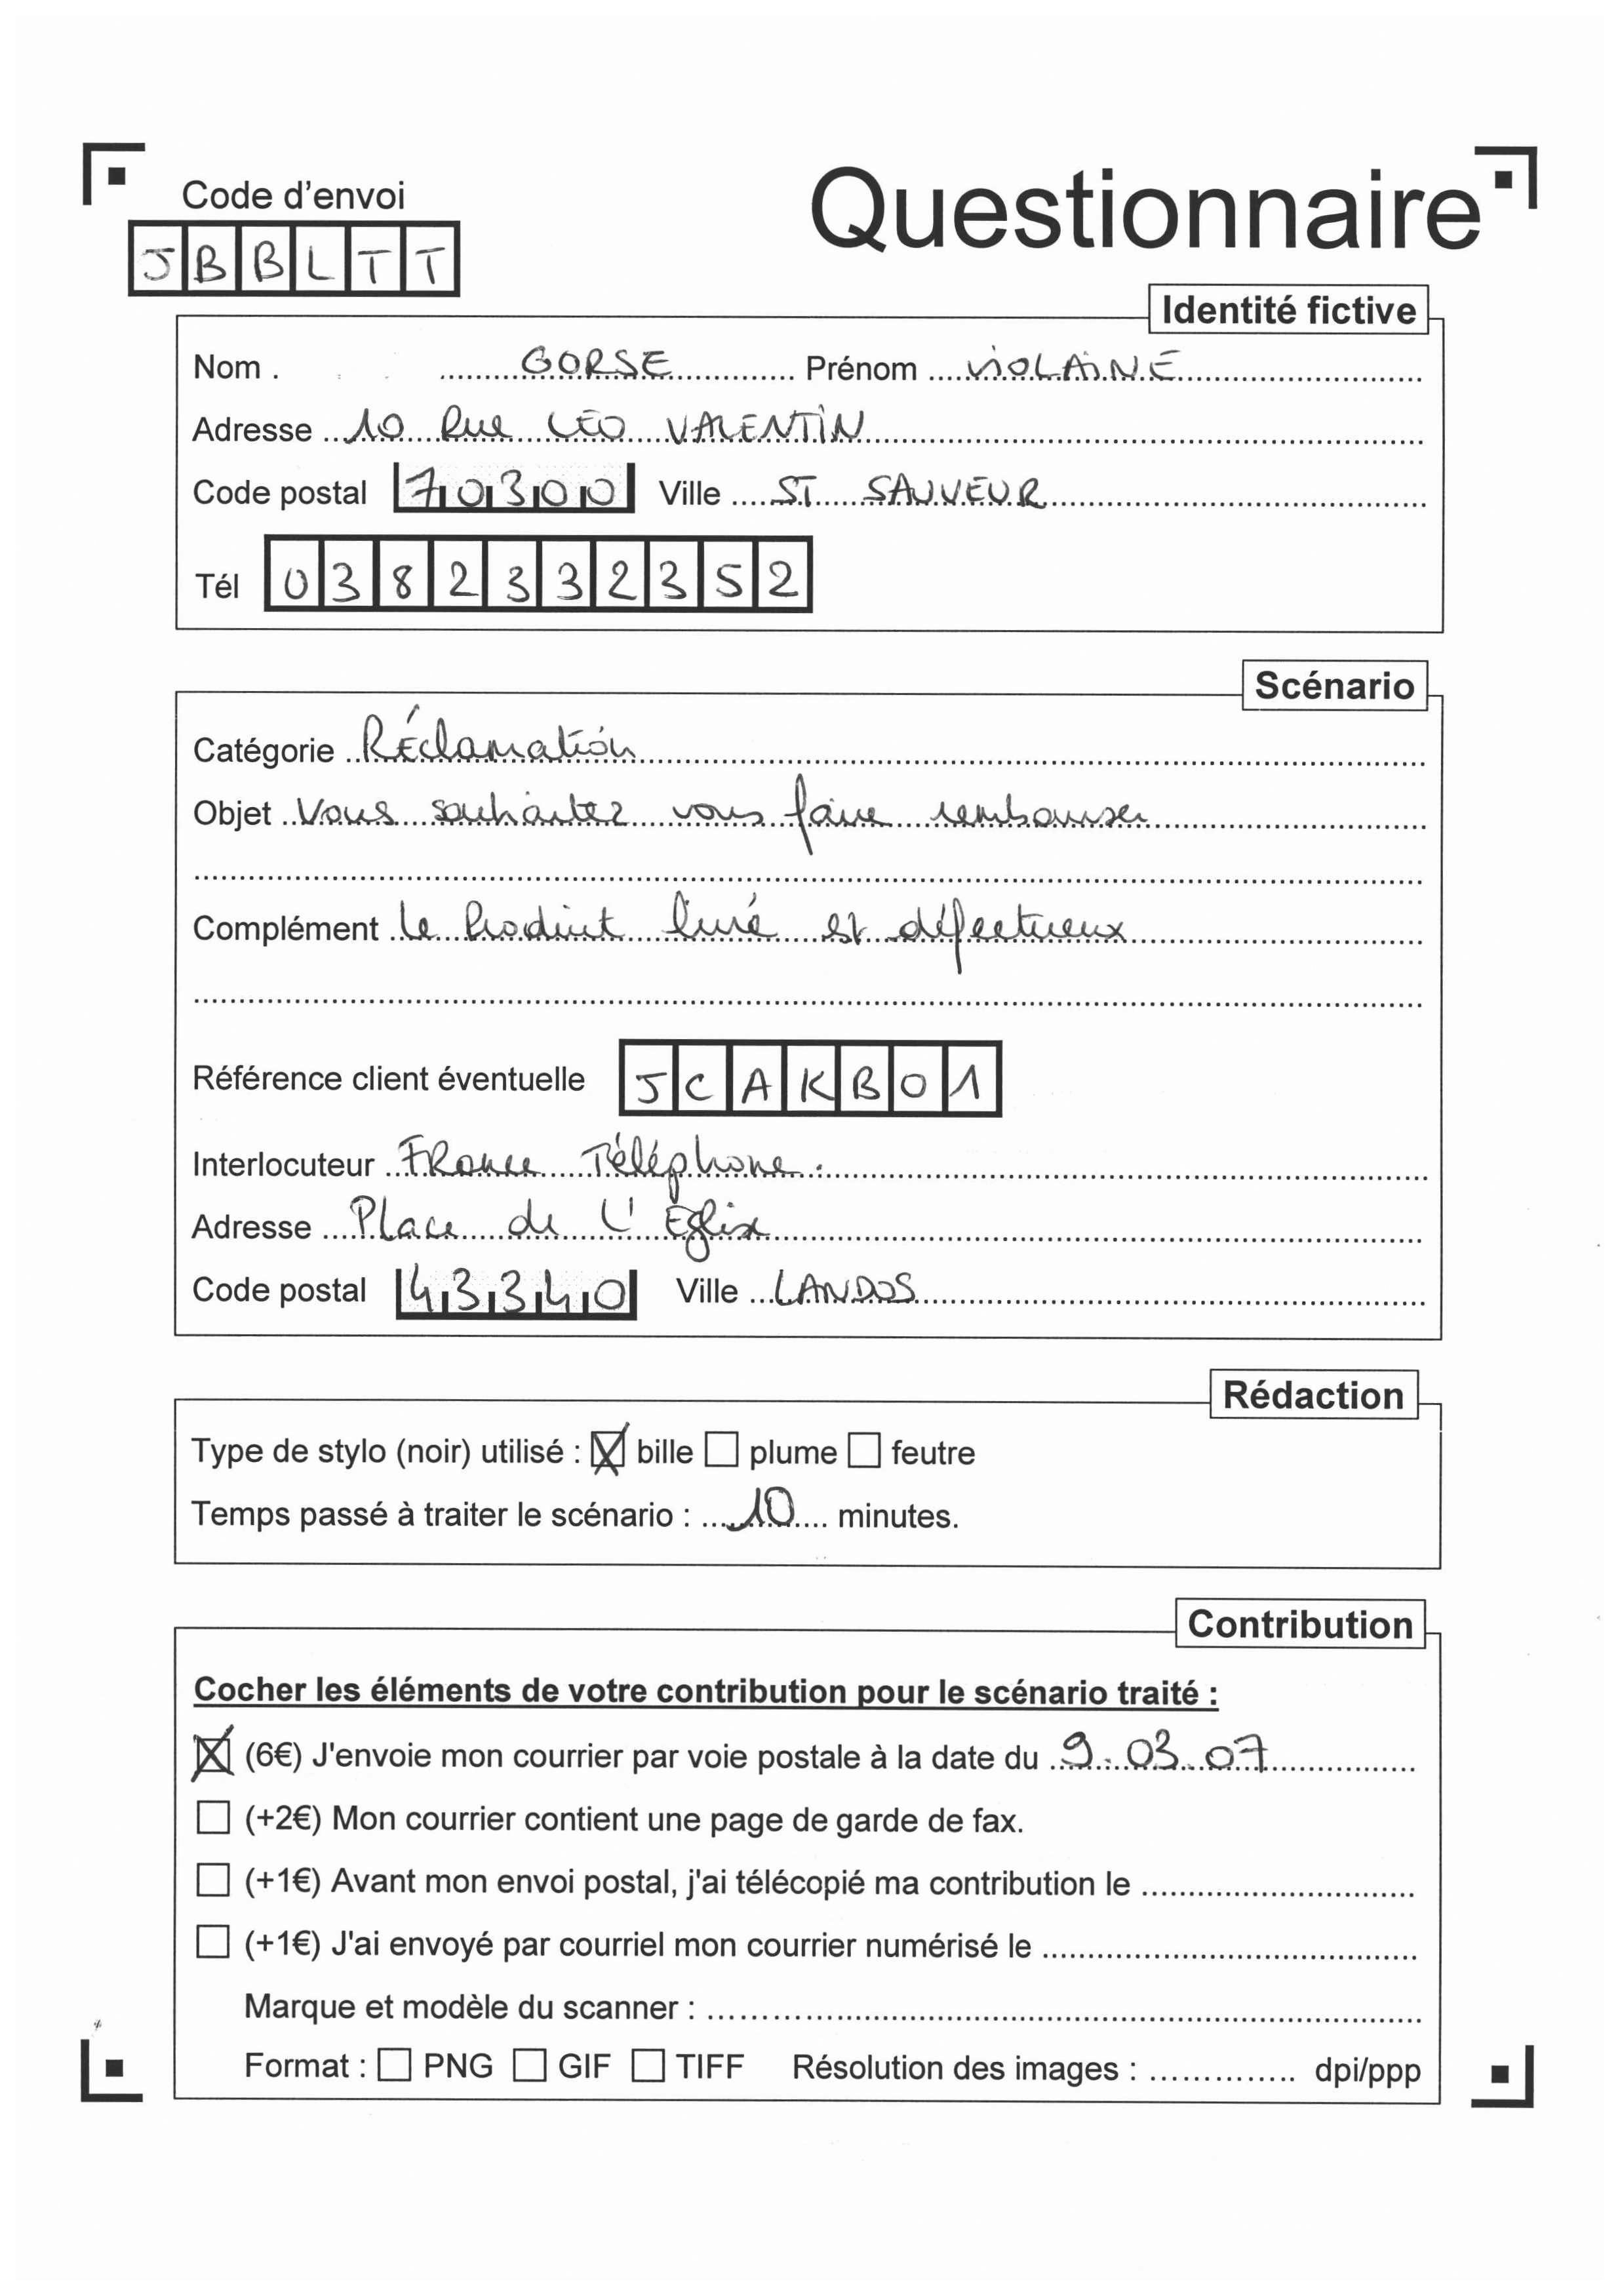 Code d'envoi
JBBLTT
Questionnaire
Identité fictive
Nom . GORSE Prénom VIOLAINE
Adresse 10 Rue LÉO VALENTIN
Code postal 70300 Ville ST SAUVEUR
Tél 0382332352
Scénario
Catégorie RÉclamation
Objet Vous souhaitez vous faire rembourser
Complément Le Produit livré est défectueux
Référence client éventuelle JCAKB01
Interlocuteur FRance Téléphone.
Adresse Place de L'Église
Code postal 43340 Ville LANDOS
Rédaction
Type de stylo (noir) utilisé : ☒ bille ☐ plume ☐ feutre
Temps passé à traiter le scénario : 10 minutes.
Contribution
Cocher les éléments de votre contribution pour le scénario traité :
☒ (6€) J'envoie mon courrier par voie postale à la date du 9.03.07
☐ (+2€) Mon courrier contient une page de garde de fax.
☐ (+1€) Avant mon envoi postal, j'ai télécopié ma contribution le
☐ (+1€) J'ai envoyé par courriel mon courrier numérisé le
Marque et modèle du scanner :
Format : ☐ PNG ☐ GIF ☐ TIFF Résolution des images : dpi/ppp